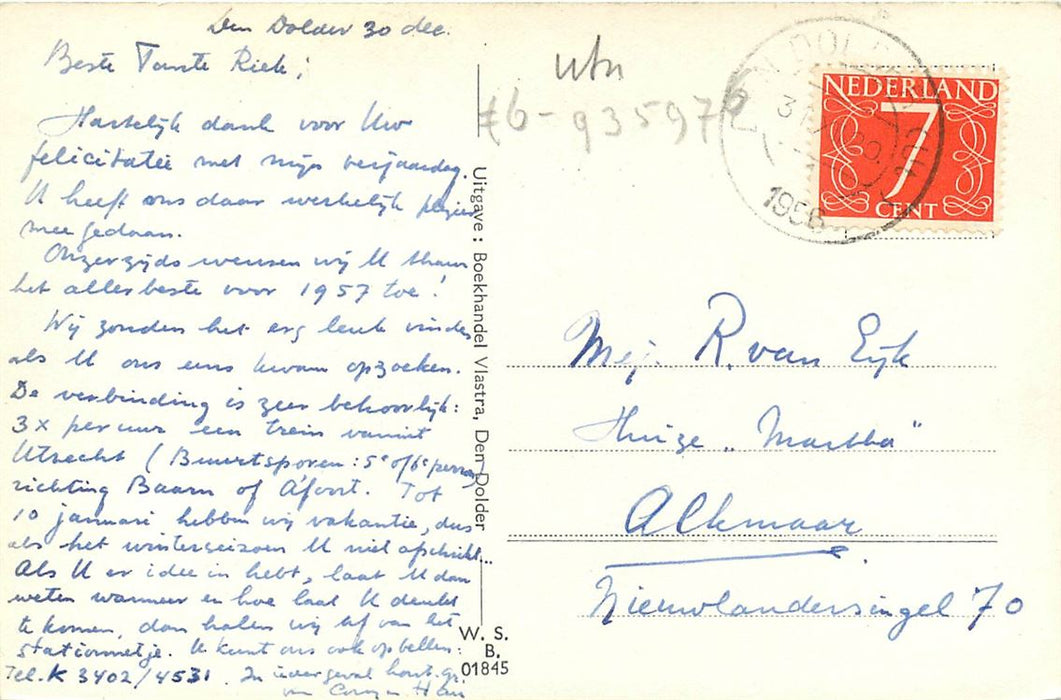 Den Dolder 30 dec.
Beste Tante Riek,
Hartelijk dank voor Uw
felicitatie met mijn verjaardag.
U heeft ons daar werkelijk plezier
mee gedaan.
Onzerzijds wensen wij U thans
het allerbeste voor 1957 toe!
Wij zouden het erg leuk vinden
als U ons eens kwam opzoeken.
De verbinding is zeer behoorlijk:
3 x per uur een trein vanuit
Utrecht (Buurtsporen: 5e of 6e perron
richting Baarn of A'foort. Tot
10 januari hebben wij vakantie, dus
als het winterseizoen U niet afschrikt...
Als U er idee in hebt, laat U dan
weten wanneer en hoe laat U denkt
te komen, dan halen wij U van het
stationnetje. U kunt ons ook opbellen:
Tel. K 3402/4531. In ieder geval hart. gr.
van Corry en Han
Uitgave: Boekhandel Vlastra, Den Dolder
W. S.
B.
01845
utn
£6-935976
DEN DOLDER
1956
NEDERLAND
7
CENT
Mej. R. van Eyk
Huize "Martha"
Alkmaar
Nieuwlandersingel 70